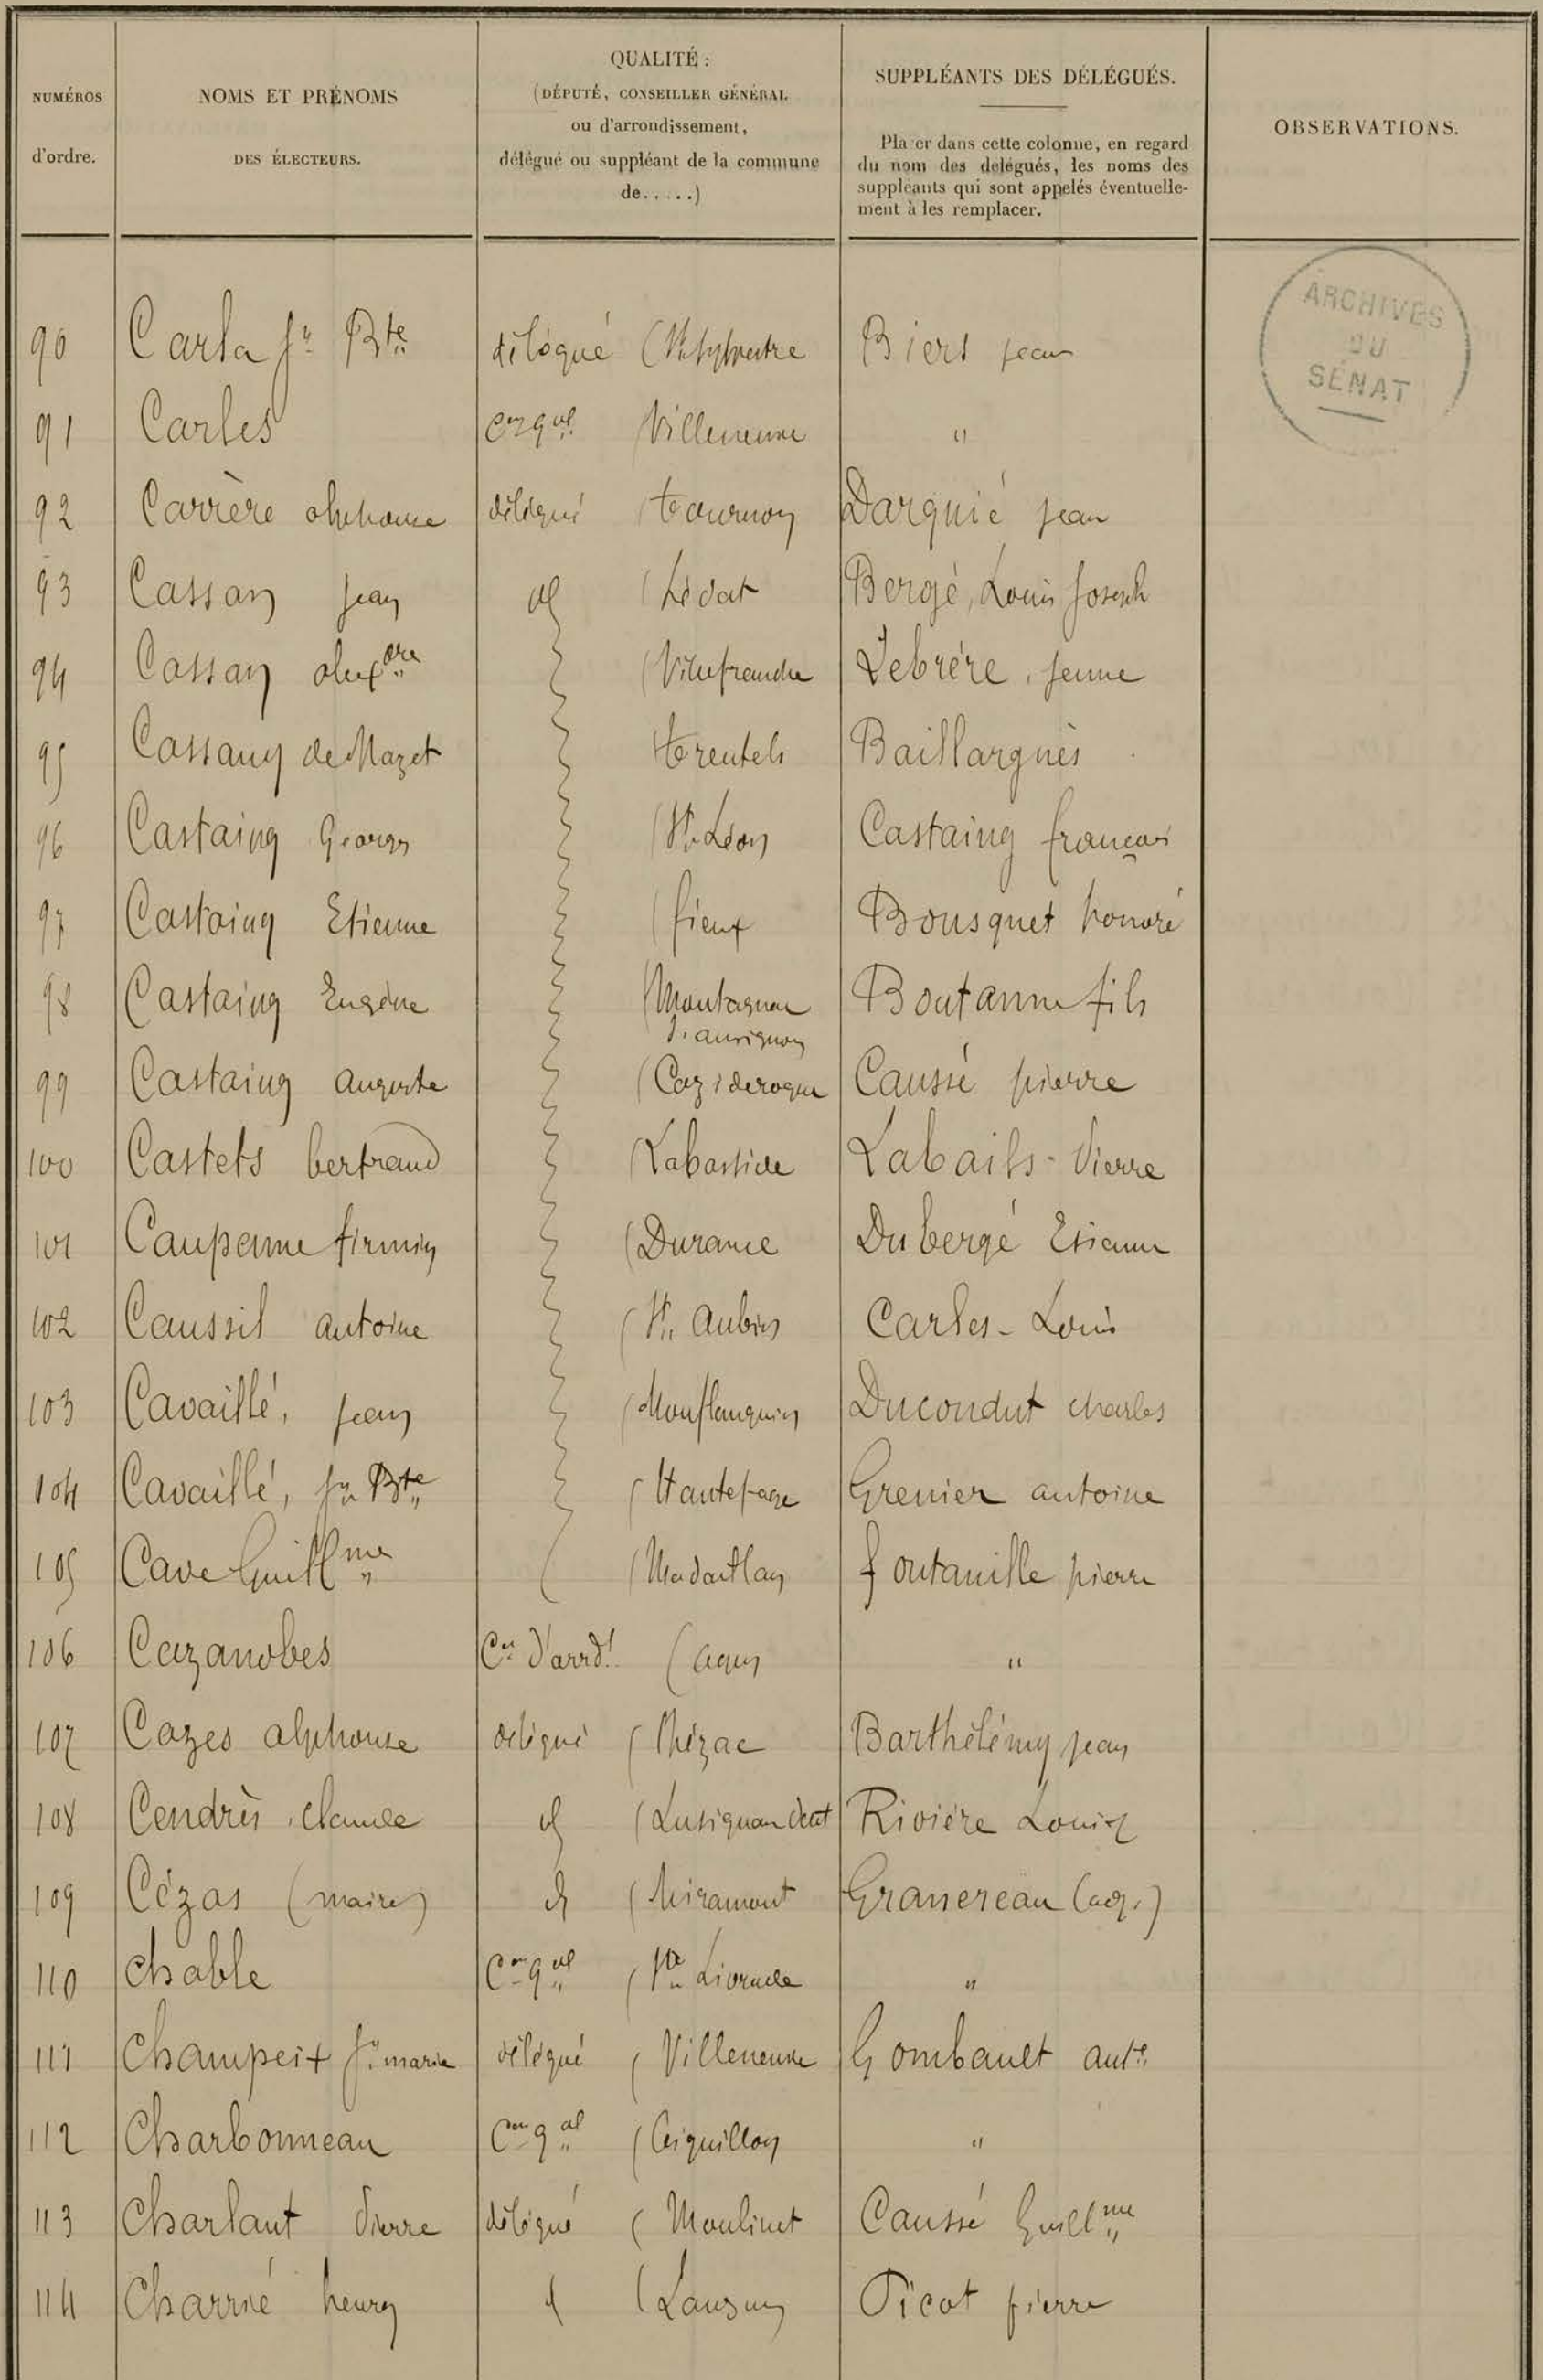 NUMÉROS
d'ordre.
NOMS ET PRÉNOMS
DES ÉLECTEURS.
QUALITÉ :
(DÉPUTÉ, CONSEILLER GÉNÉRAL
ou d'arrondissement,
délégué ou suppléant de la commune
de.....)
SUPPLÉANTS DES DÉLÉGUÉS.
Placer dans cette colonne, en regard
du nom des délégués, les noms des
suppléants qui sont appelés éventuelle-
ment à les remplacer.
OBSERVATIONS.
ARCHIVES
DU
SÉNAT
90 Carla Jn Bte délégué (St Sylvestre Biers jean
91 Carles Cer gal (Villeneuve "
92 Carrère alphonse délégué (tournon Darquié jean
93 Cassan jean id (Lédat Bergé, Louis Joseph
94 Cassan alexdre (Villefranche Lebrère, jeune
95 Cassany de Mazet (trentels Baillargués
96 Castaing Georges (St Léon Castaing françois
97 Castaing Etienne (fieux Bousquet honoré
98 Castaing Eugène (Montagnac Boutanne fils
s. auvignon
99 Castaing Auguste (Cazideroque Caussé pierre
100 Castets bertrand (Labastide Labails - Pierre
101 Caupenne firmin (Durance Dubergé Etienne
102 Caussil antoine (St Aubin Carles - Louis
103 Cavaillé, jean (Monflanquin Ducondut charles
104 Cavaillé, Jn Bte (Hautefage Grenier antoine
105 Cave Guillme (Madaillan fontanille pierre
106 Cazanobes Cer d'arrdt (agen "
107 Cazes alphonse délégué (Thézac Barthélémy jean
108 Cendrès, claude id (Lusignan Petit Rivière Louis
109 Cézas (maire) id (Miramont Granereau (adj.)
110 Chable Cer gal (Ste Livrade "
111 Champeix Jn marie délégué (Villeneuve Gombault ante
112 Charbonneau Cer gal (Aiguillon "
113 Charlant Pierre délégué (Moulinet Caussé Guillme
114 Charrié henry id (Lauzun Picot pierre